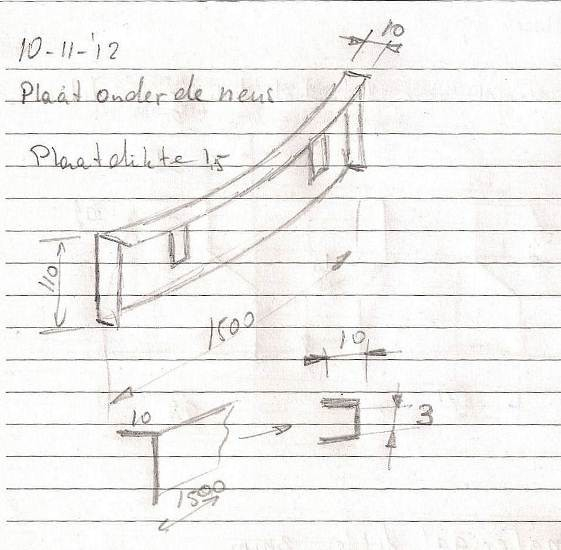 10-11-'12
10
Plaat onder de neus
Plaatdikte 1,5
110
1500
10
10
3
1500